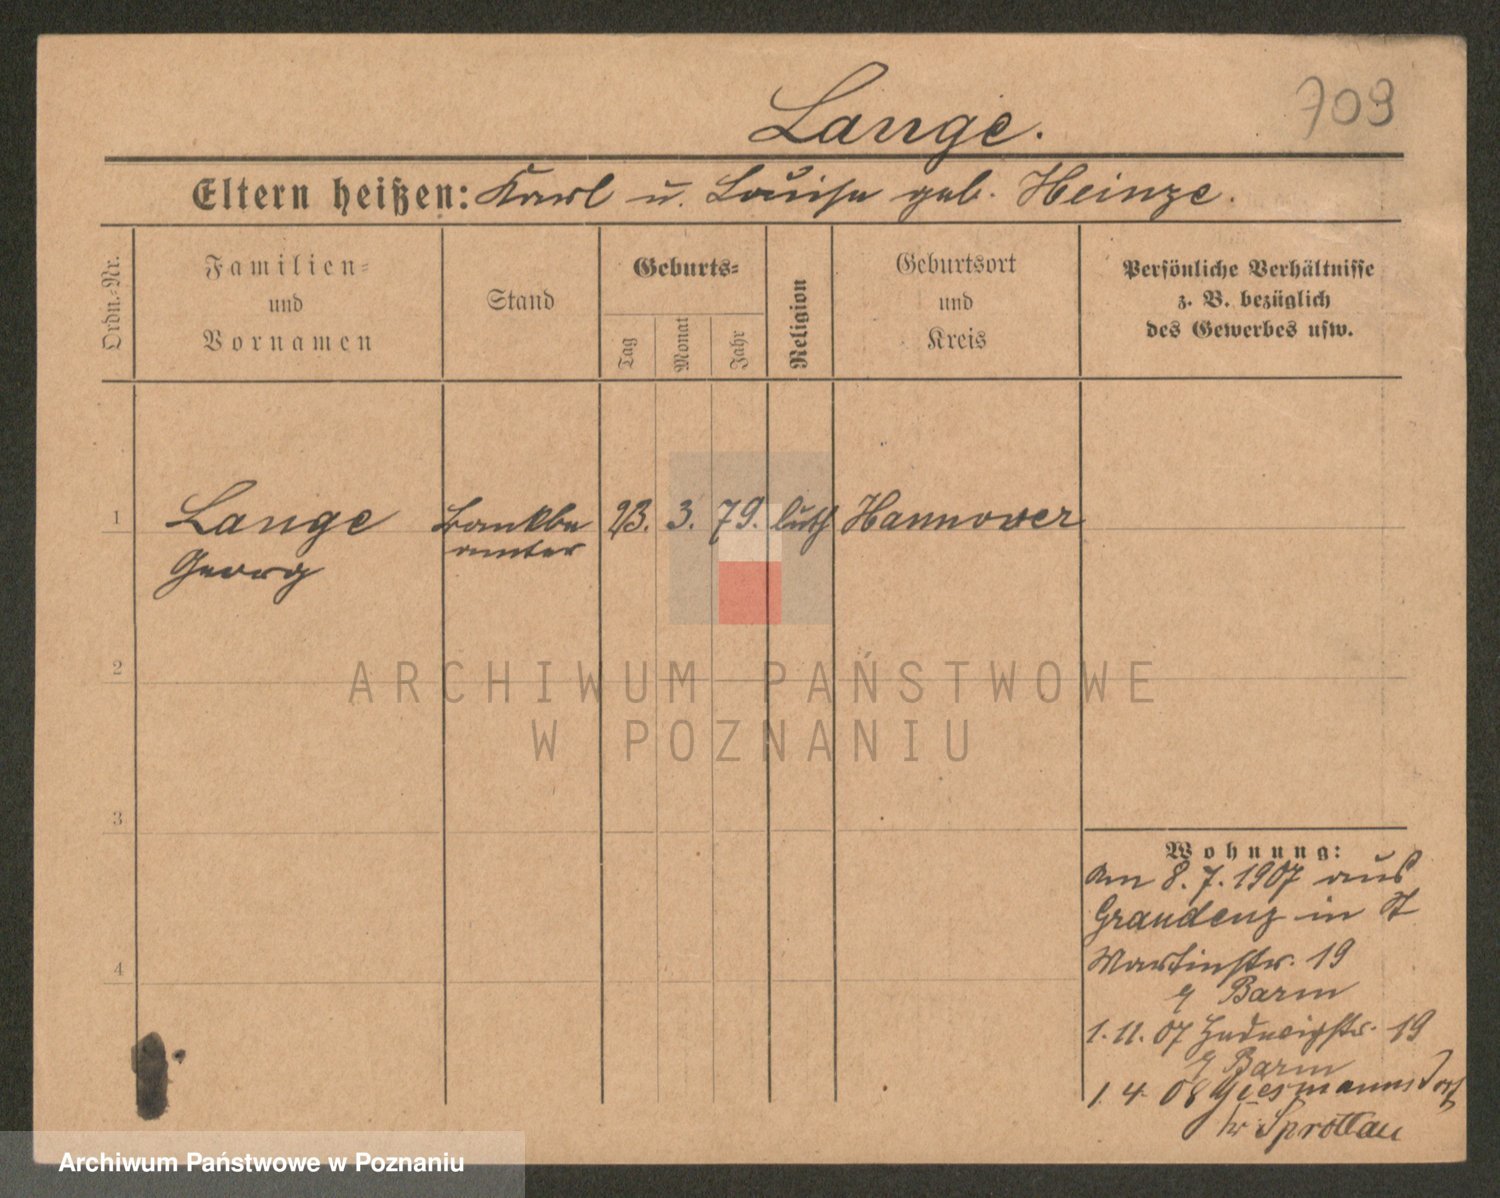 709
Lange.
Eltern heißen: Karl u. Louise geb. Heinze.
Ordn.-Nr.
Familien-
und
Vornamen
Stand
Geburts-
Tag
Monat
Jahr
Religion
Geburtsort
und
Kreis
Persönliche Verhältnisse
z. B. bezüglich
des Gewerbes usw.
1 Lange Bankbe 23. 3. 79. luth Hannover
Georg amter
2
3
4
ARCHIWUM PAŃSTWOWE
W POZNANIU
Wohnung:
Am 8. 7. 1907 aus
Graudenz in St
Martinstr. 19
b/ Barm
1. 11. 07 Hedwigstr. 19
b/ Barm
1. 4. 08 Giesmannsdorf
Kr Sprottau
Archiwum Państwowe w Poznaniu